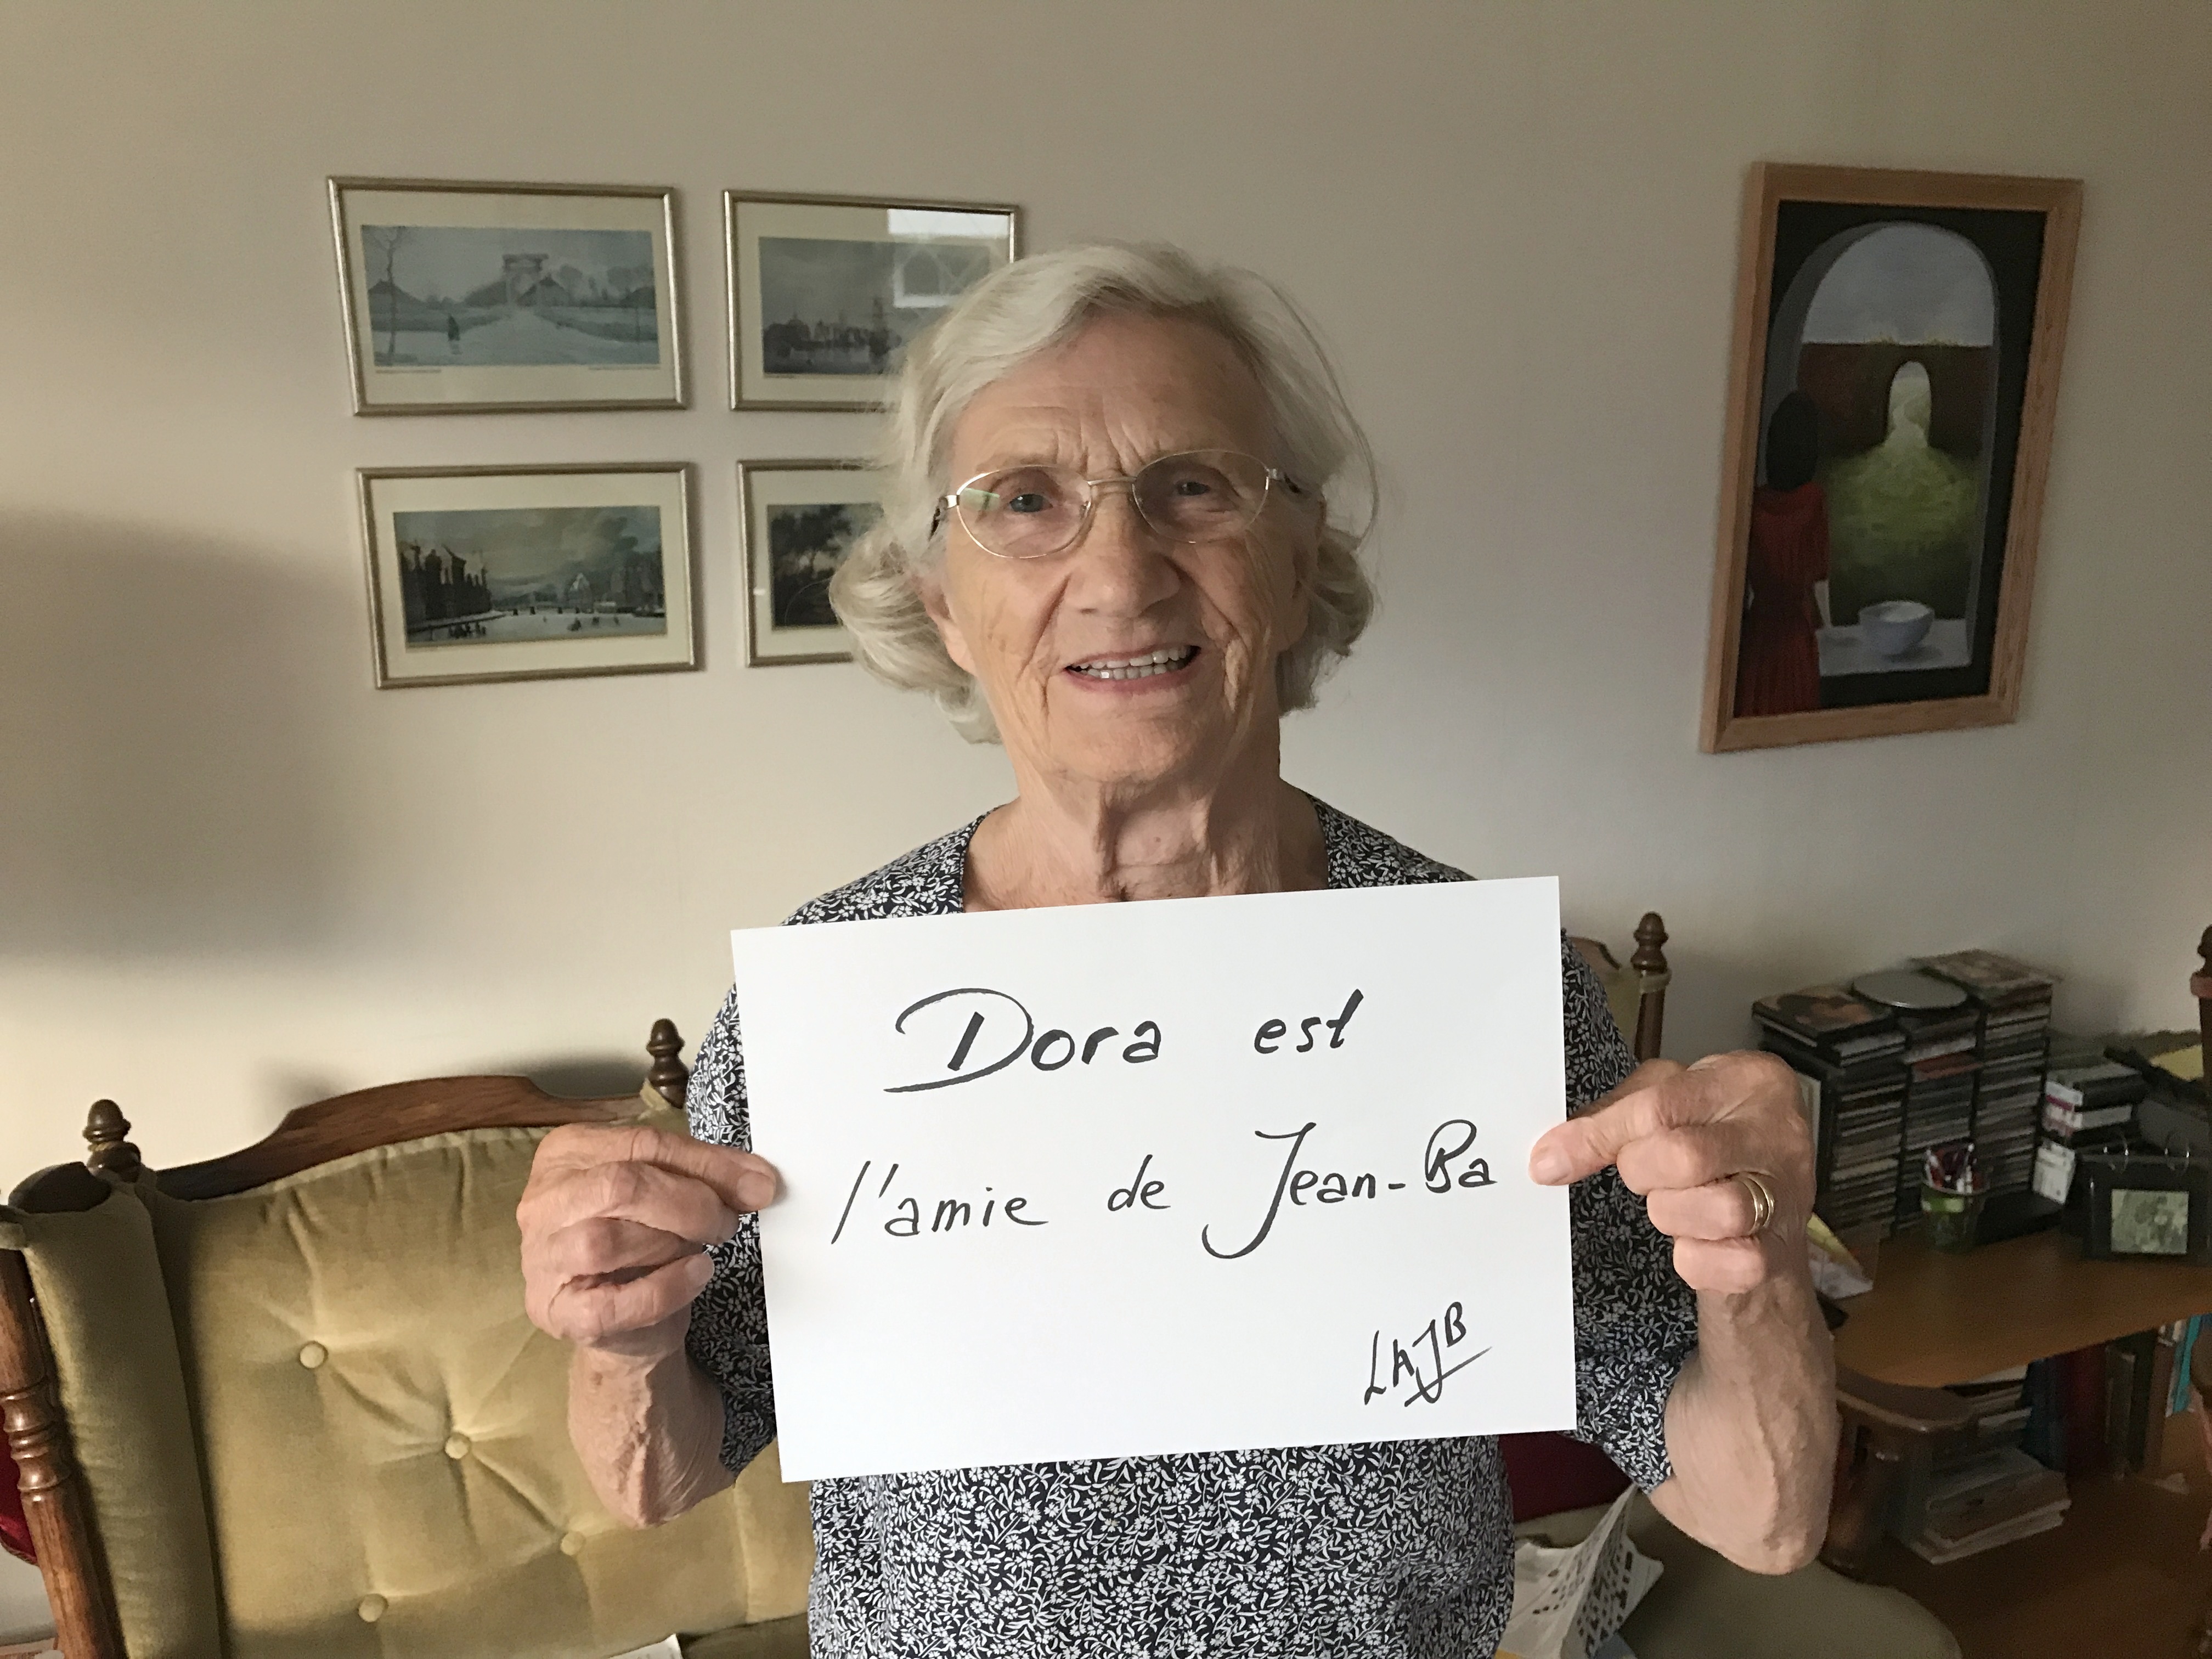 Dora est
l'amie de Jean-Ba
LAJB